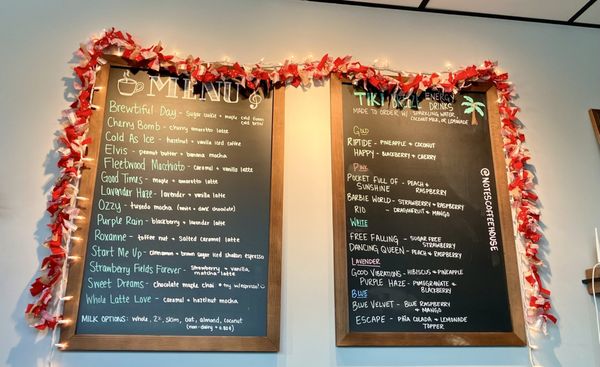 MENU
Brewtiful Day - Sugar cookie + maple cold foam cold brew
Cherry Bomb - cherry amaretto latte
Cold As Ice - hazelnut + vanilla iced coffee
Elvis - peanut butter + banana mocha
Fleetwood Macchiato - caramel + vanilla
Good Times - maple + amaretto latte
Lavender Haze - lavender + vanilla latte
Ozzy - tuxedo mocha (white + dark chocolate)
Purple Rain - blackberry + lavender latte
Roxanne - toffee nut + salted caramel latte
Start Me Up - cinnamon + brown sugar iced shaken espresso
Strawberry Fields Forever - Strawberry + vanilla matcha latte
Sweet Dreams - chocolate maple chai
Whole Latte Love - caramel + hazelnut mocha
MILK OPTIONS: Whole, 2%, Skim, oat, almond, coconut
(non-dairy + 0.50¢)
TIKI ENERGY DRINKS
MADE TO ORDER W/ SPARKLING WATER,
COCONUT MILK, OR LEMONADE
GOLD
RIPTIDE - PINEAPPLE + COCONUT
HAPPY - BLACKBERRY + CHERRY
PINK
POCKET FULL OF SUNSHINE - PEACH + RASPBERRY
BARBIE WORLD - STRAWBERRY + RASPBERRY
RIO - DRAGONFRUIT + MANGO
WHITE
FREE FALLING - SUGAR FREE STRAWBERRY
DANCING QUEEN - PEACH + RASPBERRY
LAVENDER
GOOD VIBRATIONS - HIBISCUS + PINEAPPLE
PURPLE HAZE - POMEGRANATE + BLACKBERRY
BLUE
BLUE VELVET - BLUE RASPBERRY + MANGO
ESCAPE - PIÑA COLADA + LEMONADE TOPPER
@NOTESCOFFEEHOUSE